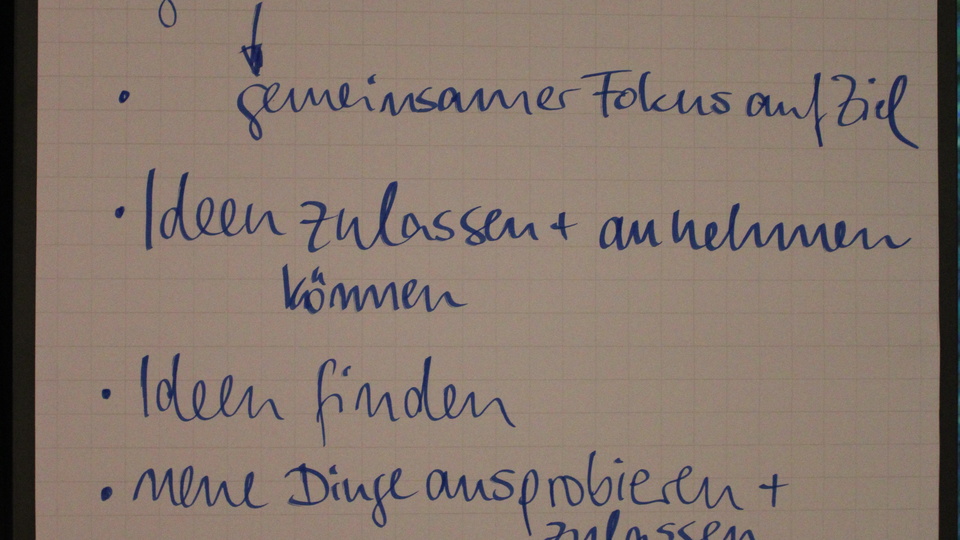 • gemeinsamer Fokus auf Ziel
• Ideen zulassen + annehmen
können
• Ideen finden
• neue Dinge ausprobieren +
zulassen